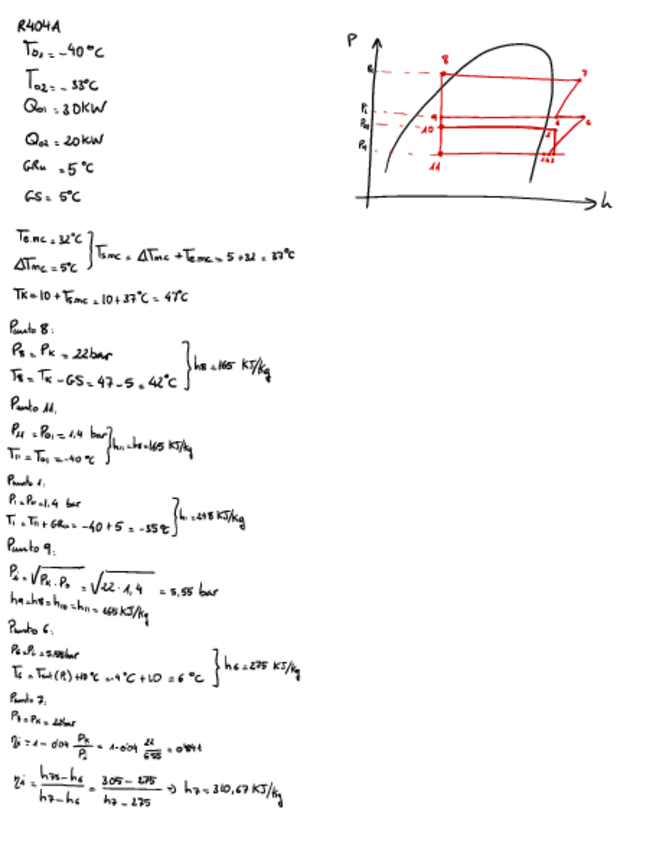 R404A
To1 = -40°C
To2 = -33°C
Qo1 = 30KW
Qo2 = 20KW
GRu = 5°C
GS = 5°C
P
h
8
7
9
6
10
11
Te.mc = 32°C
ΔTmc = 5°C
Tsmc = ΔTmc + Temc = 5+32 = 37°C
TK = 10 + Tsmc = 10+37°C = 47°C
Punto 8:
P8 = PK = 22bar
T8 = TK - GS = 47-5 = 42°C
h8 = 165 KJ/kg
Punto 11:
P11 = Po1 = 1,4 bar
T11 = To1 = -40°C
h11 = h8 = 165 KJ/kg
Punto 1:
P1 = P11 = 1,4 bar
T1 = T11 + GRu = -40+5 = -35°C
h1 = 248 KJ/kg
Punto 9:
Pi = √PK·Po = √22·1,4 = 5,55 bar
h9 = h8 = h10 = h11 = 165 KJ/kg
Punto 6:
P6 = Pi = 5,55bar
T6 = Tsat(Pi) +10°C = -4°C + 10 = 6°C
h6 = 275 KJ/kg
Punto 7:
P7 = PK = 22bar
ηi = 1 - 0'04 PK/Pi = 1 - 0'04 22/5,55 = 0'841
ηi = h7s-h6/h7-h6 = 305-275/h7-275 ⇒ h7 = 310,67 KJ/kg